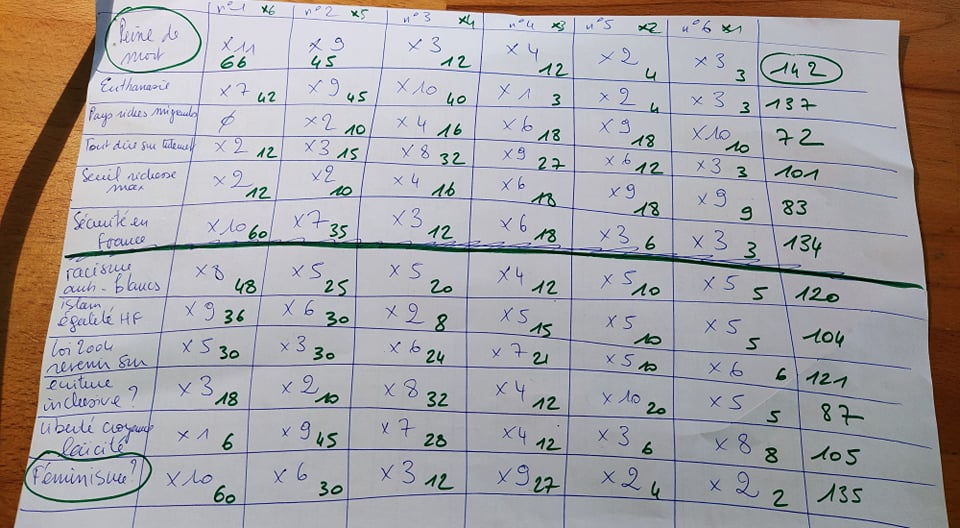 n°1 x6 n°2 x5 n°3 x4 n°4 x3 n°5 x2 n°6 x1
Peine de x11 x9 x3 x4 x2 x3
mort 66 45 12 12 4 3 142
Euthanasie x7 42 x9 45 x10 40 x1 3 x2 4 x3 3 137
Pays riches migrants ∅ x2 10 x4 16 x6 18 x9 18 x10 10 72
Tout dire sur x2 12 x3 15 x8 32 x9 27 x6 12 x3 3 101
Seuil richesse x2 x2 x4 x6 x9 x9
max 12 10 16 18 18 9 83
Sécurité en x10 x7 x3 x6 x3 x3
France 60 35 12 18 6 3 134
racisme x8 x5 x5 x4 x5 x5
anti-blancs 48 25 20 12 10 5 120
islam, x9 x6 x2 x5 x5 x5
égalité HF 36 30 8 15 10 5 104
loi 2004 x5 x3 x6 x7 x5 x6
revenir sur 30 30 24 21 10 6 121
écriture x3 x2 x8 x4 x10 x5
inclusive ? 18 10 32 12 20 5 87
liberté x1 x9 x7 x4 x3 x8
laïcité 6 45 28 12 6 8 105
Féminisme ? x10 60 x6 30 x3 12 x9 27 x2 4 x2 2 135